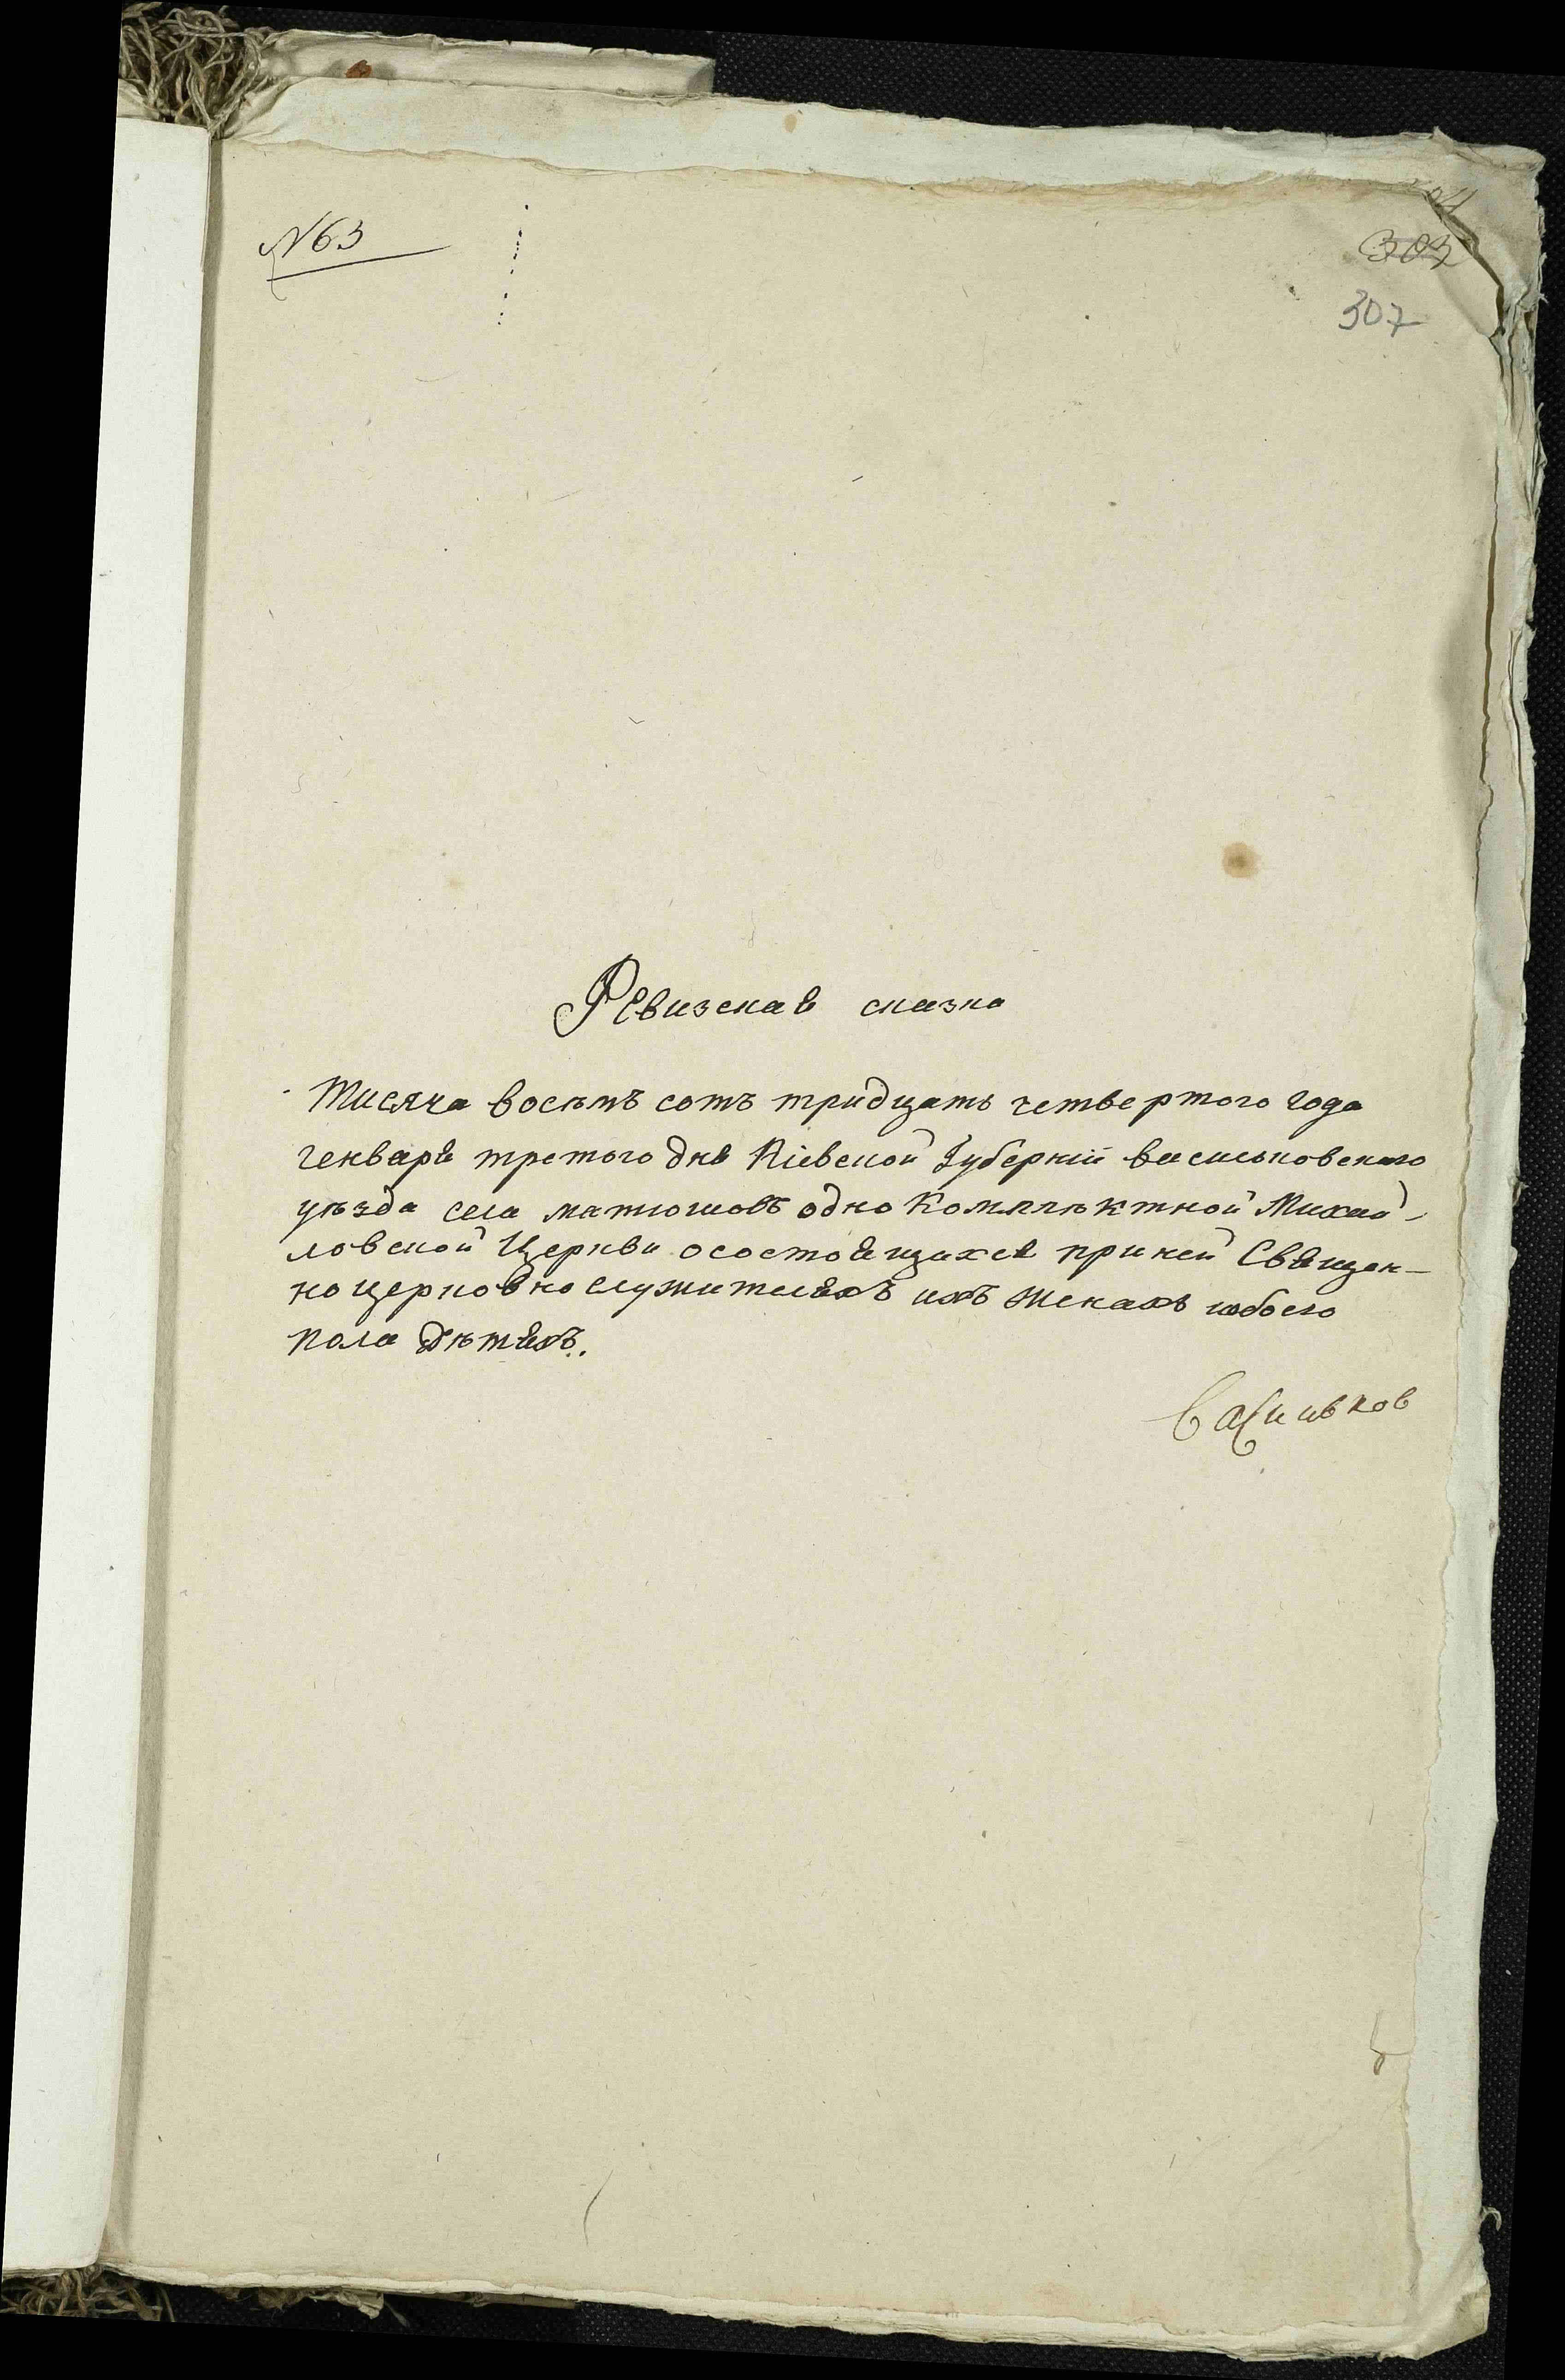 № 63
303
307
Ревизская сказка
Тисяча восѣмъ сотъ тридцать четвертого года
генваря третого дня Кіевской Губерніи василькoвского
уѣзда села матюшовъ одно комплѣктной Михай-
ловской Церкви осостоящихся приней Священ-
но церковно служителяхъ ихъ женахъ иобоего
пола дѣтяхъ.